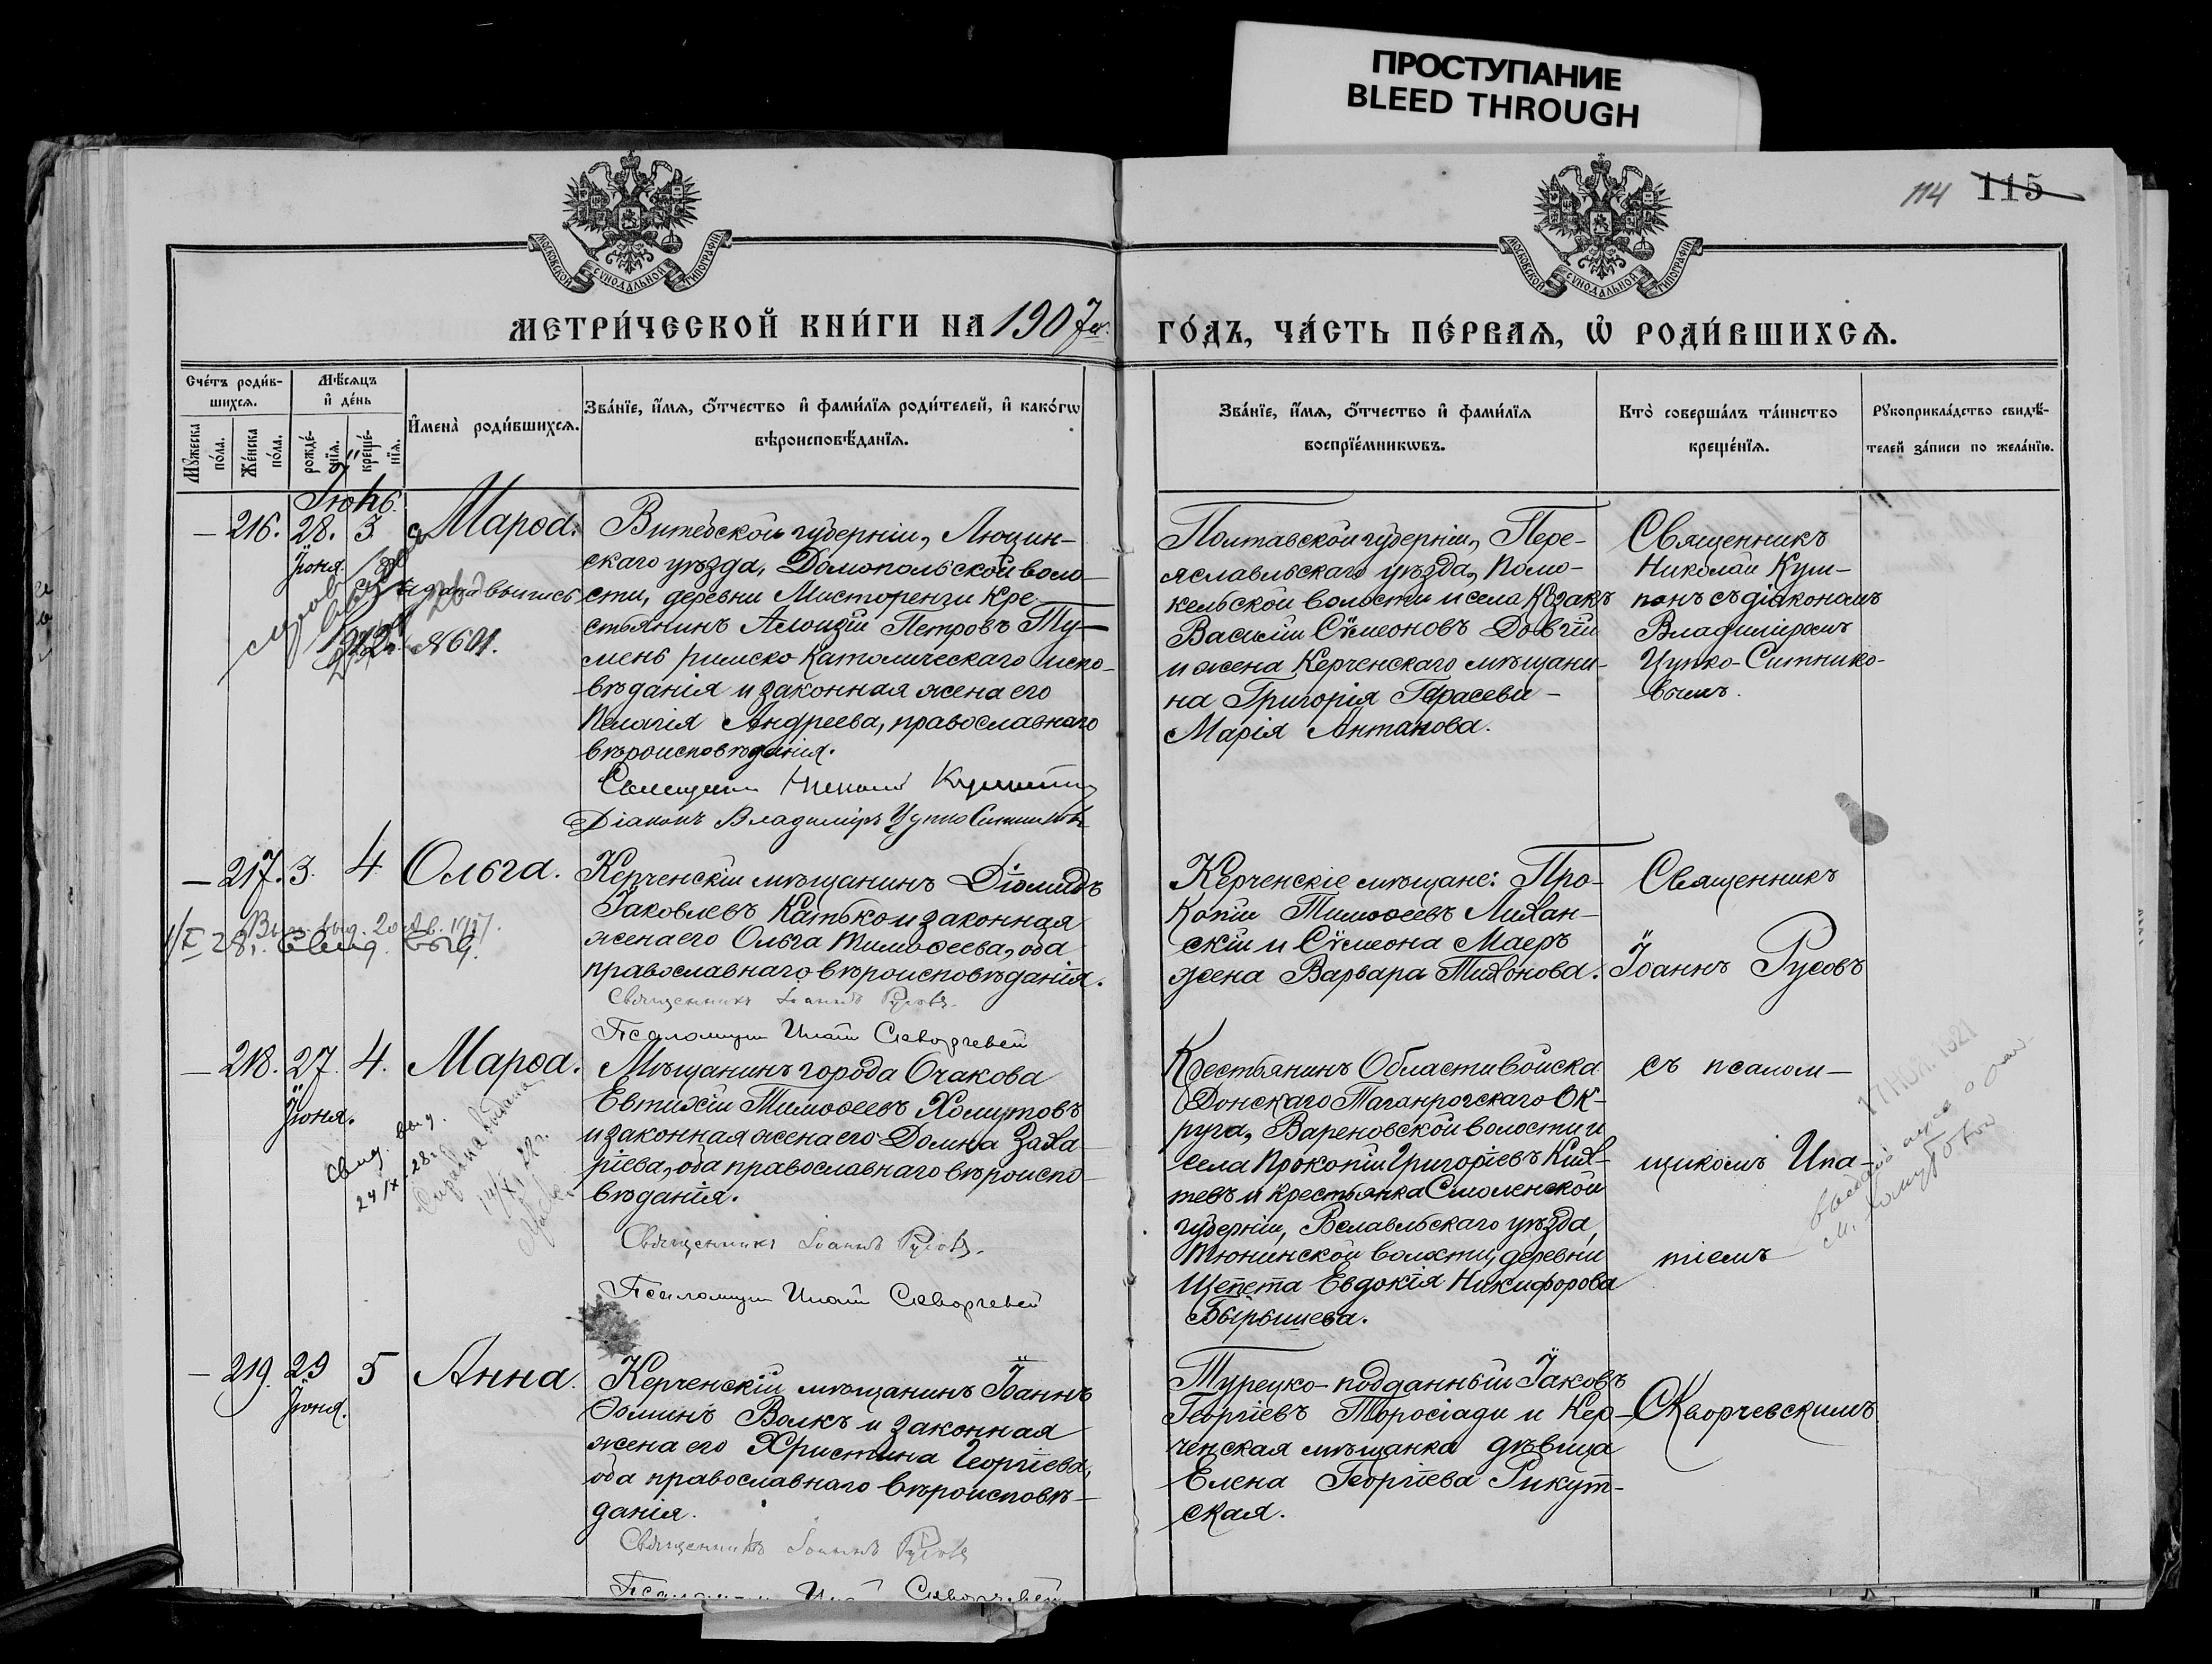 ПРОСТУПАНИЕ
BLEED THROUGH
114 115
МОСКОВСКОЙ СѴНОДАЛЬНОЙ ТИПОГРАФІИ
МОСКОВСКОЙ СѴНОДАЛЬНОЙ ТИПОГРАФІИ
МЕТРИ́ЧЕСКОЙ КНИ́ГИ НА 1907 й.
ГО́ДЪ, ЧА́СТЬ ПЕ́РВАѦ, Ѡ҆ РОДИ́ВШИХСѦ.
Сче́тъ роди́в-
шихсѧ.
Мꙋ́жеска по́ла.
Же́нска по́ла.
Мѣ́сѧцъ
и҆ де́нь
рожде́-
нїѧ.
креще́-
нїѧ.
И҆мена̀ роди́вшихсѧ.
Зва́нїе, и҆́мѧ, ѻ҆́тчество и҆ фами́лїѧ роди́телей, и҆ како́гѡ
вѣроисповѣ́данїѧ.
Зва́нїе, и҆́мѧ, ѻ҆́тчество и҆ фами́лїѧ
воспрїе́мникѡвъ.
Кто̀ соверша́лъ та́инство
креще́нїѧ.
Рꙋкоприкла́дство свидѣ́-
телей за́писи по жела́нїю.
Іюнь.
— 216. 28. 3. Марѳа.
Іюня.
Витебской губерніи, Люцин-
скаго уѣзда, Домопольской воло-
сти, деревни Мисторенги кре-
стьянинъ Алоизій Петровъ Ту-
мень римско католическаго испо-
вѣданія и законная жена его
Пелагія Андреева, православнаго
вѣроисповѣданія.
Священникъ Николай
Діаконъ Владиміръ Цупко Ситников
№ 601.
Полтавской губерніи, Пере-
яславльскаго уѣзда, Помо-
кельской волости и села Козакъ
Василій Сѵмеоновъ Довгій
и жена Керченскаго мѣщани-
на Григорія Герасева-
Марія Антонова.
Священникъ
Николай Куш-
панъ съ діакономъ
Владиміромъ
Цупко-Ситнико-
вымъ.
— 217. 3. 4 Ольга.
28. Свид. выд.
Керченскій мѣщанинъ Діомидъ
Іаковлевъ Катько и законная
жена его Ольга Тимоѳеева, оба
православнаго вѣроисповѣданія.
Священникъ Іоаннъ Русовъ.
Псаломщик Ипатій Скворчевскій
Керченскіе мѣщане: Про-
копій Тимоѳеевъ Лихан-
скій и Сѵмеона Маеръ
жена Варвара Тихонова.
Священникъ
Іоаннъ Русовъ
— 218. 27. 4. Марѳа.
Іюня.
Свид. выд.
24/IX-28г.
Справка выдана
Мѣщанинъ города Очакова
Евтихій Тимоѳеевъ Хомутовъ
и законная жена его Домна Заха-
ріева, оба православнаго вѣроиспо-
вѣданія.
Священникъ Іоаннъ Русовъ.
Псаломщик Ипатій Скворчевскій
Крестьянинъ Области войска
Донскаго Таганрогскаго Ок-
руга, Вареновской волости и
села Прокопій Григоріевъ Ких-
тевъ и крестьянка Смоленской
губерніи, Рославльскаго уѣзда,
Тюнинской волости, деревни
Щепета Евдокія Никифорова
Бырышева.
съ псалом-
щикомъ Ипа-
тіемъ
— 219. 29 5 Анна.
Іюня.
Керченскій мѣщанинъ Іоаннъ
Ѳоминъ Волкъ и законная
жена его Христина Георгіева,
оба православнаго вѣроисповѣ-
данія.
Священникъ Іоаннъ Русовъ
Псаломщик Ипатій Скворчевскій
Турецко-подданный Іаковъ
Георгіевъ Торосіади и Кер-
ченская мѣщанка дѣвица
Елена Георгіева Рикут-
ская.
Скворчевскимъ